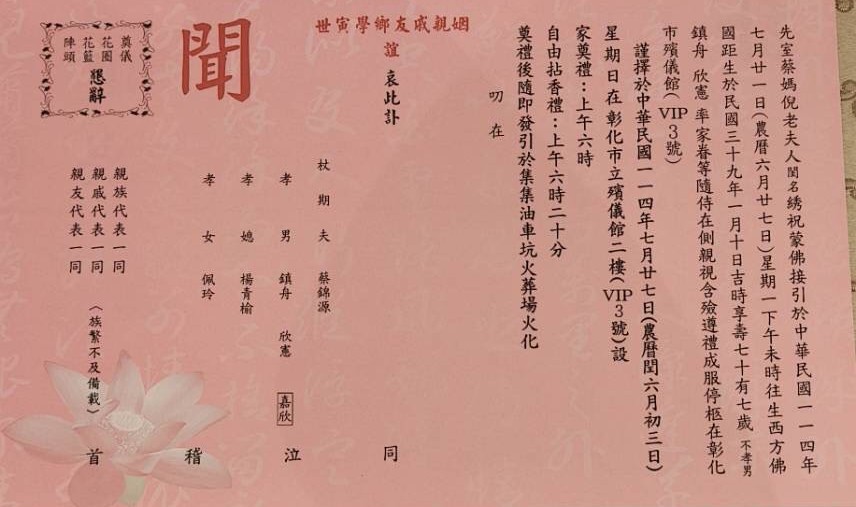 先室蔡媽倪老夫人閨名綉祝蒙佛接引於中華民國一一四年
七月廿一日(農曆六月廿七日)星期一下午未時往生西方佛
國距生於民國三十九年一月十日吉時享壽七十有七歲 不孝男
鎮舟 欣憲 率家眷等隨侍在側親視含殮遵禮成服停柩在彰化
市殯儀館(VIP3號)
謹擇於中華民國一一四年七月廿七日(農曆閏六月初三日)
星期日在彰化市立殯儀館二樓(VIP3號)設
家奠禮：上午六時
自由拈香禮：上午六時二十分
奠禮後隨即發引於集集油車坑火葬場火化
叨在
姻親戚友鄉學寅世
誼 哀此訃
聞
杖期夫 蔡錦源
孝男 鎮舟 欣憲 嘉欣
孝媳 楊青榆
孝女 佩玲
同泣稽首
親族代表一同
親戚代表一同
親友代表一同
(族繁不及備載)
奠儀
花圈
花籃
陣頭
懇辭